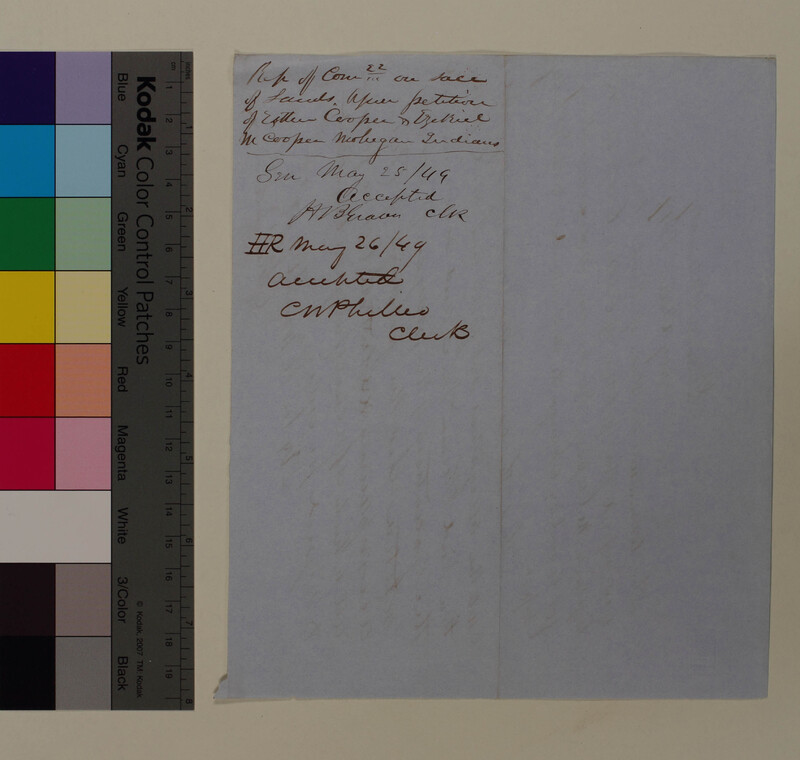 Rep of Com 22 on sale
of Lands. Upon petition
of Esther Cooper & Ezekiel
M Cooper Mohegan Indians
Sen May 25/49
Accepted
H B Graves Clk
HR May 26/49
Accepted
C W Philleo
Clerk
Kodak Color Control Patches
Blue
Cyan
Green
Yellow
Red
Magenta
White
3/Color
Black
© Kodak, 2007 TM: Kodak
cm 1 2 3 4 5 6 7 8 9 10 11 12 13 14 15 16 17 18 19
inches 1 2 3 4 5 6 7 8